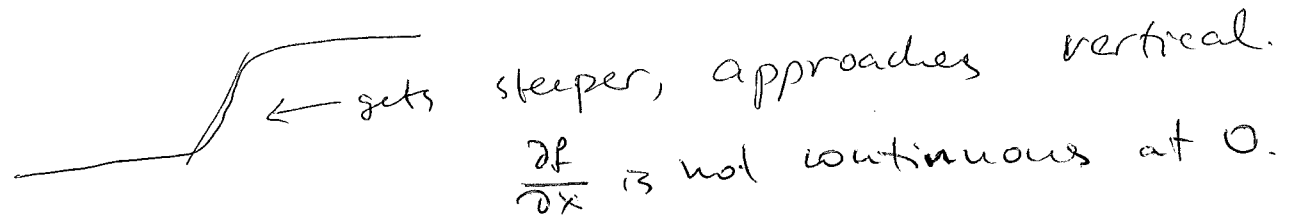 ← gets steeper, approaches vertical.
∂f/∂x is not continuous at 0.